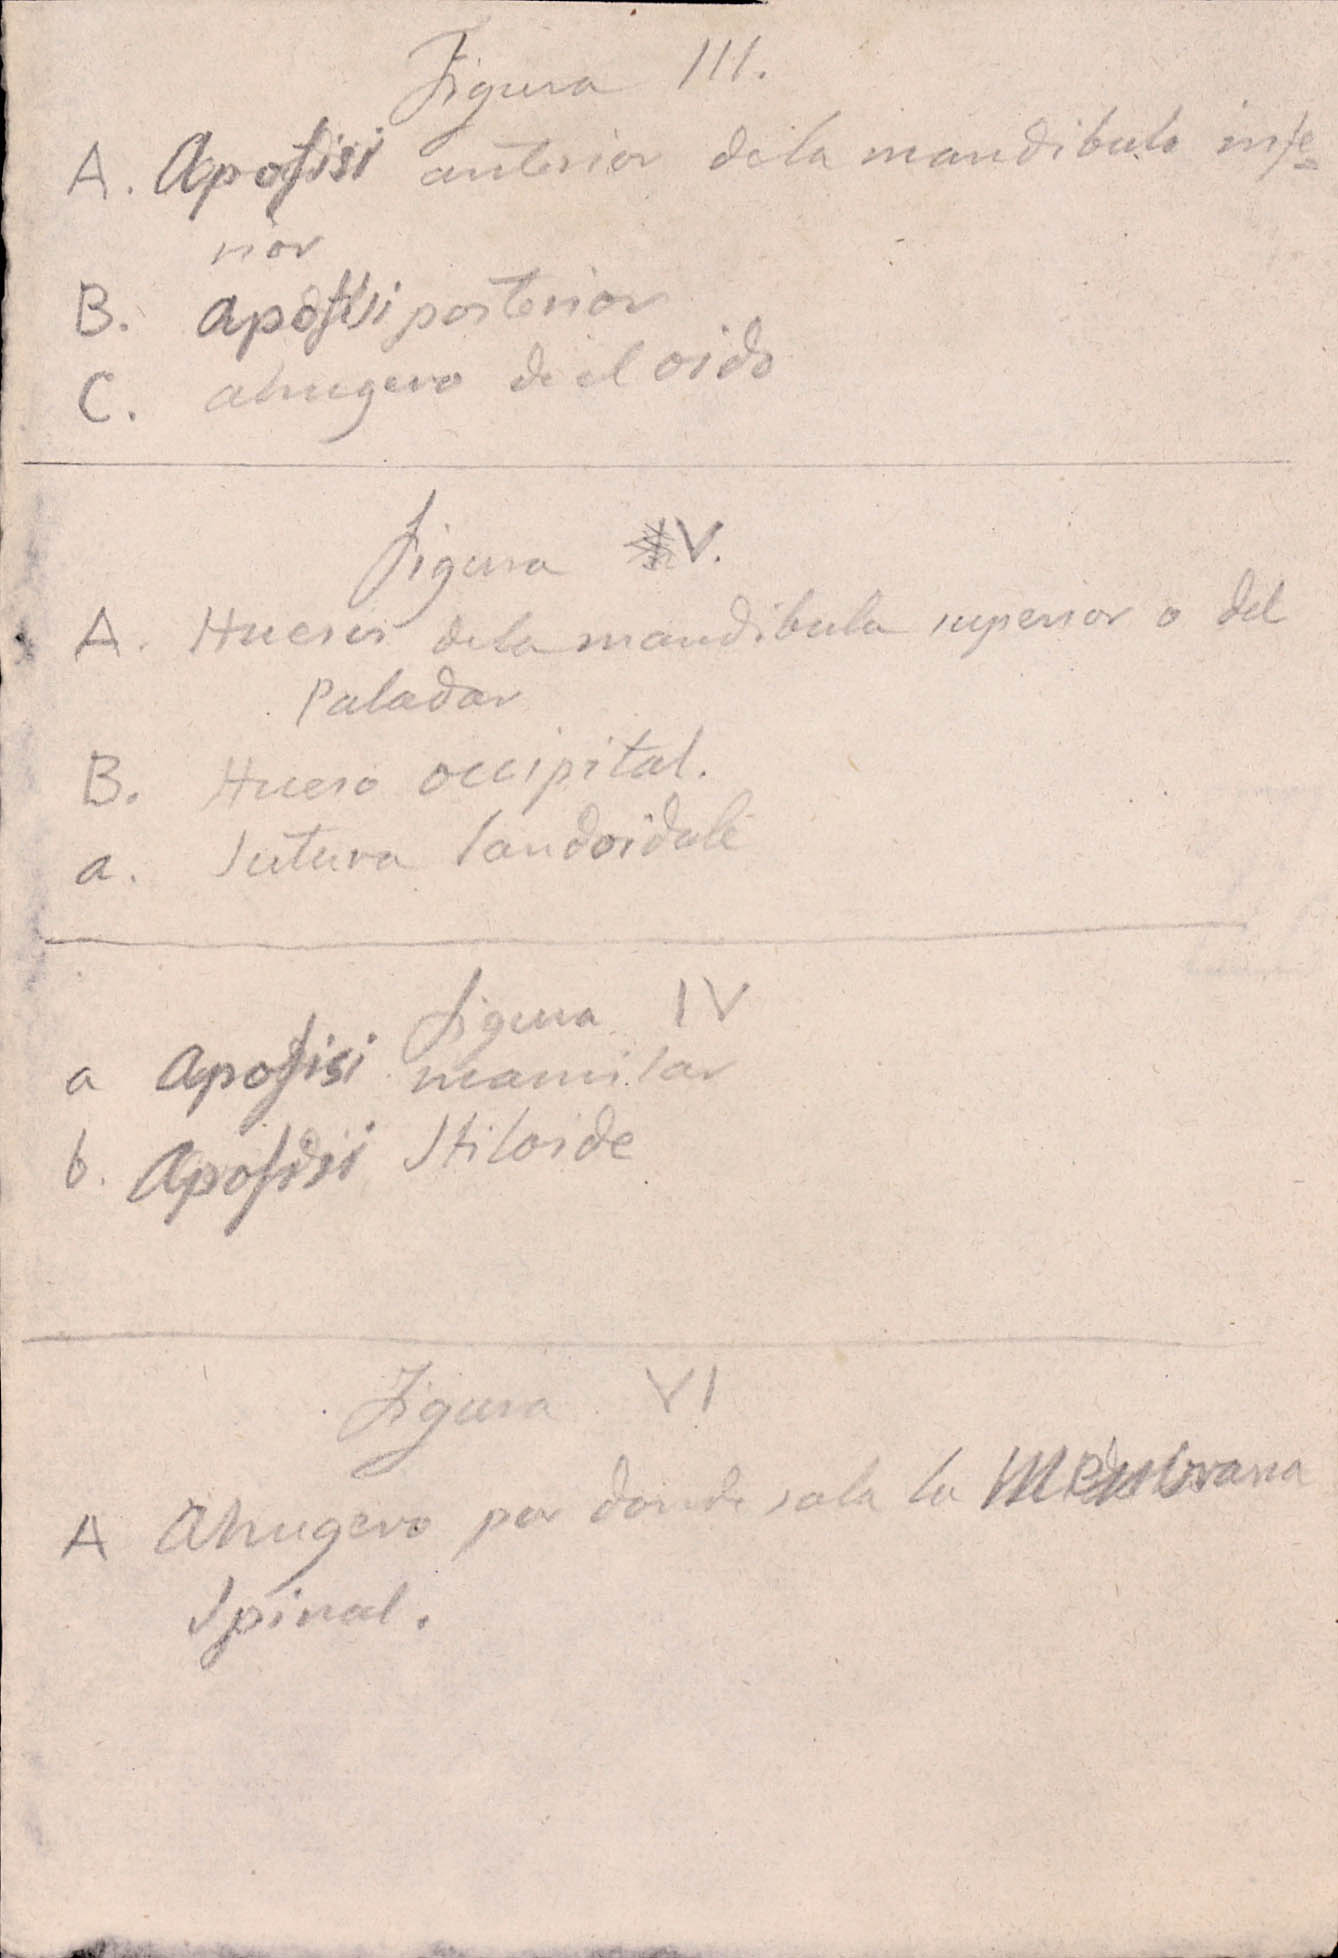 Figura III.
A. Apofisi anterior dela mandibula infe=
rior
B. apofisi posterior
C. ahugero de el oido
figura V.
A. Hueso dela mandibula superior o del
Paladar
B. Hueso occipital.
a. Sutura landoidale
figura IV
a Apofisi mamilar
b. Apofisi Stiloide
Figura VI
A Ahugero por donde sale la Membrana
Spinal.